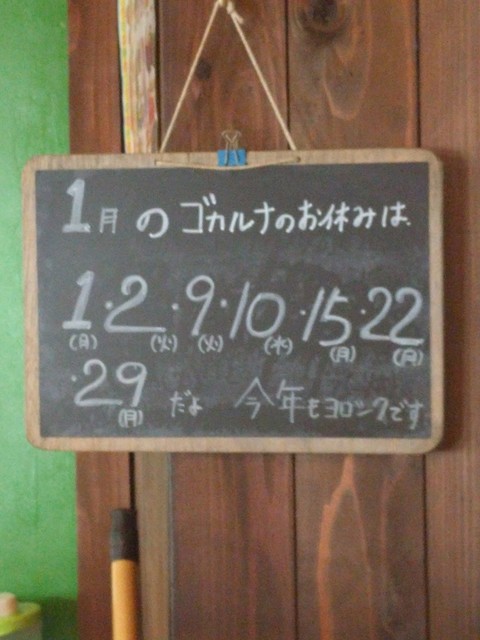 1月のゴカルナのお休みは
1(月)・2(火)・9(火)・10(水)・15(月)・22(月)
・29(月)だよ 今年もヨロシクです